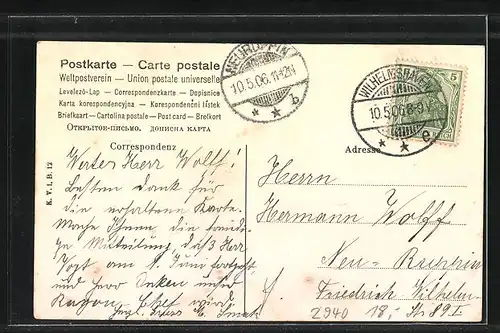 Postkarte — Carte postale
Weltpostverein — Union postale universelle
Levelező-Lap — Correspondenzkarte — Dopisnice
Karta korespondencyjna — Korespondenční lístek
Briefkaart — Cartolina postale — Post card — Brefkort
Открытое-письмо. ДОПИСНА КАРТА
NEURUPPIN
10.5.06.11-12N
* * b
WILHELMSHAVEN
10.5.06.8-9V
* * e
5
Correspondenz
Adresse
K. V. i. B. 12
Wertes Herr Wolff!
Besten Dank für
die erhaltene Karte.
Mache Ihnen, die
Mitteilung, daß Herr
Vogt am 1. Juni
und Herr Onken
Chef wird.
Herrn
Hermann Wolff
Neu-Ruppin
Friedrich-Wilhelm-
Str. 89 I
2940 18.-